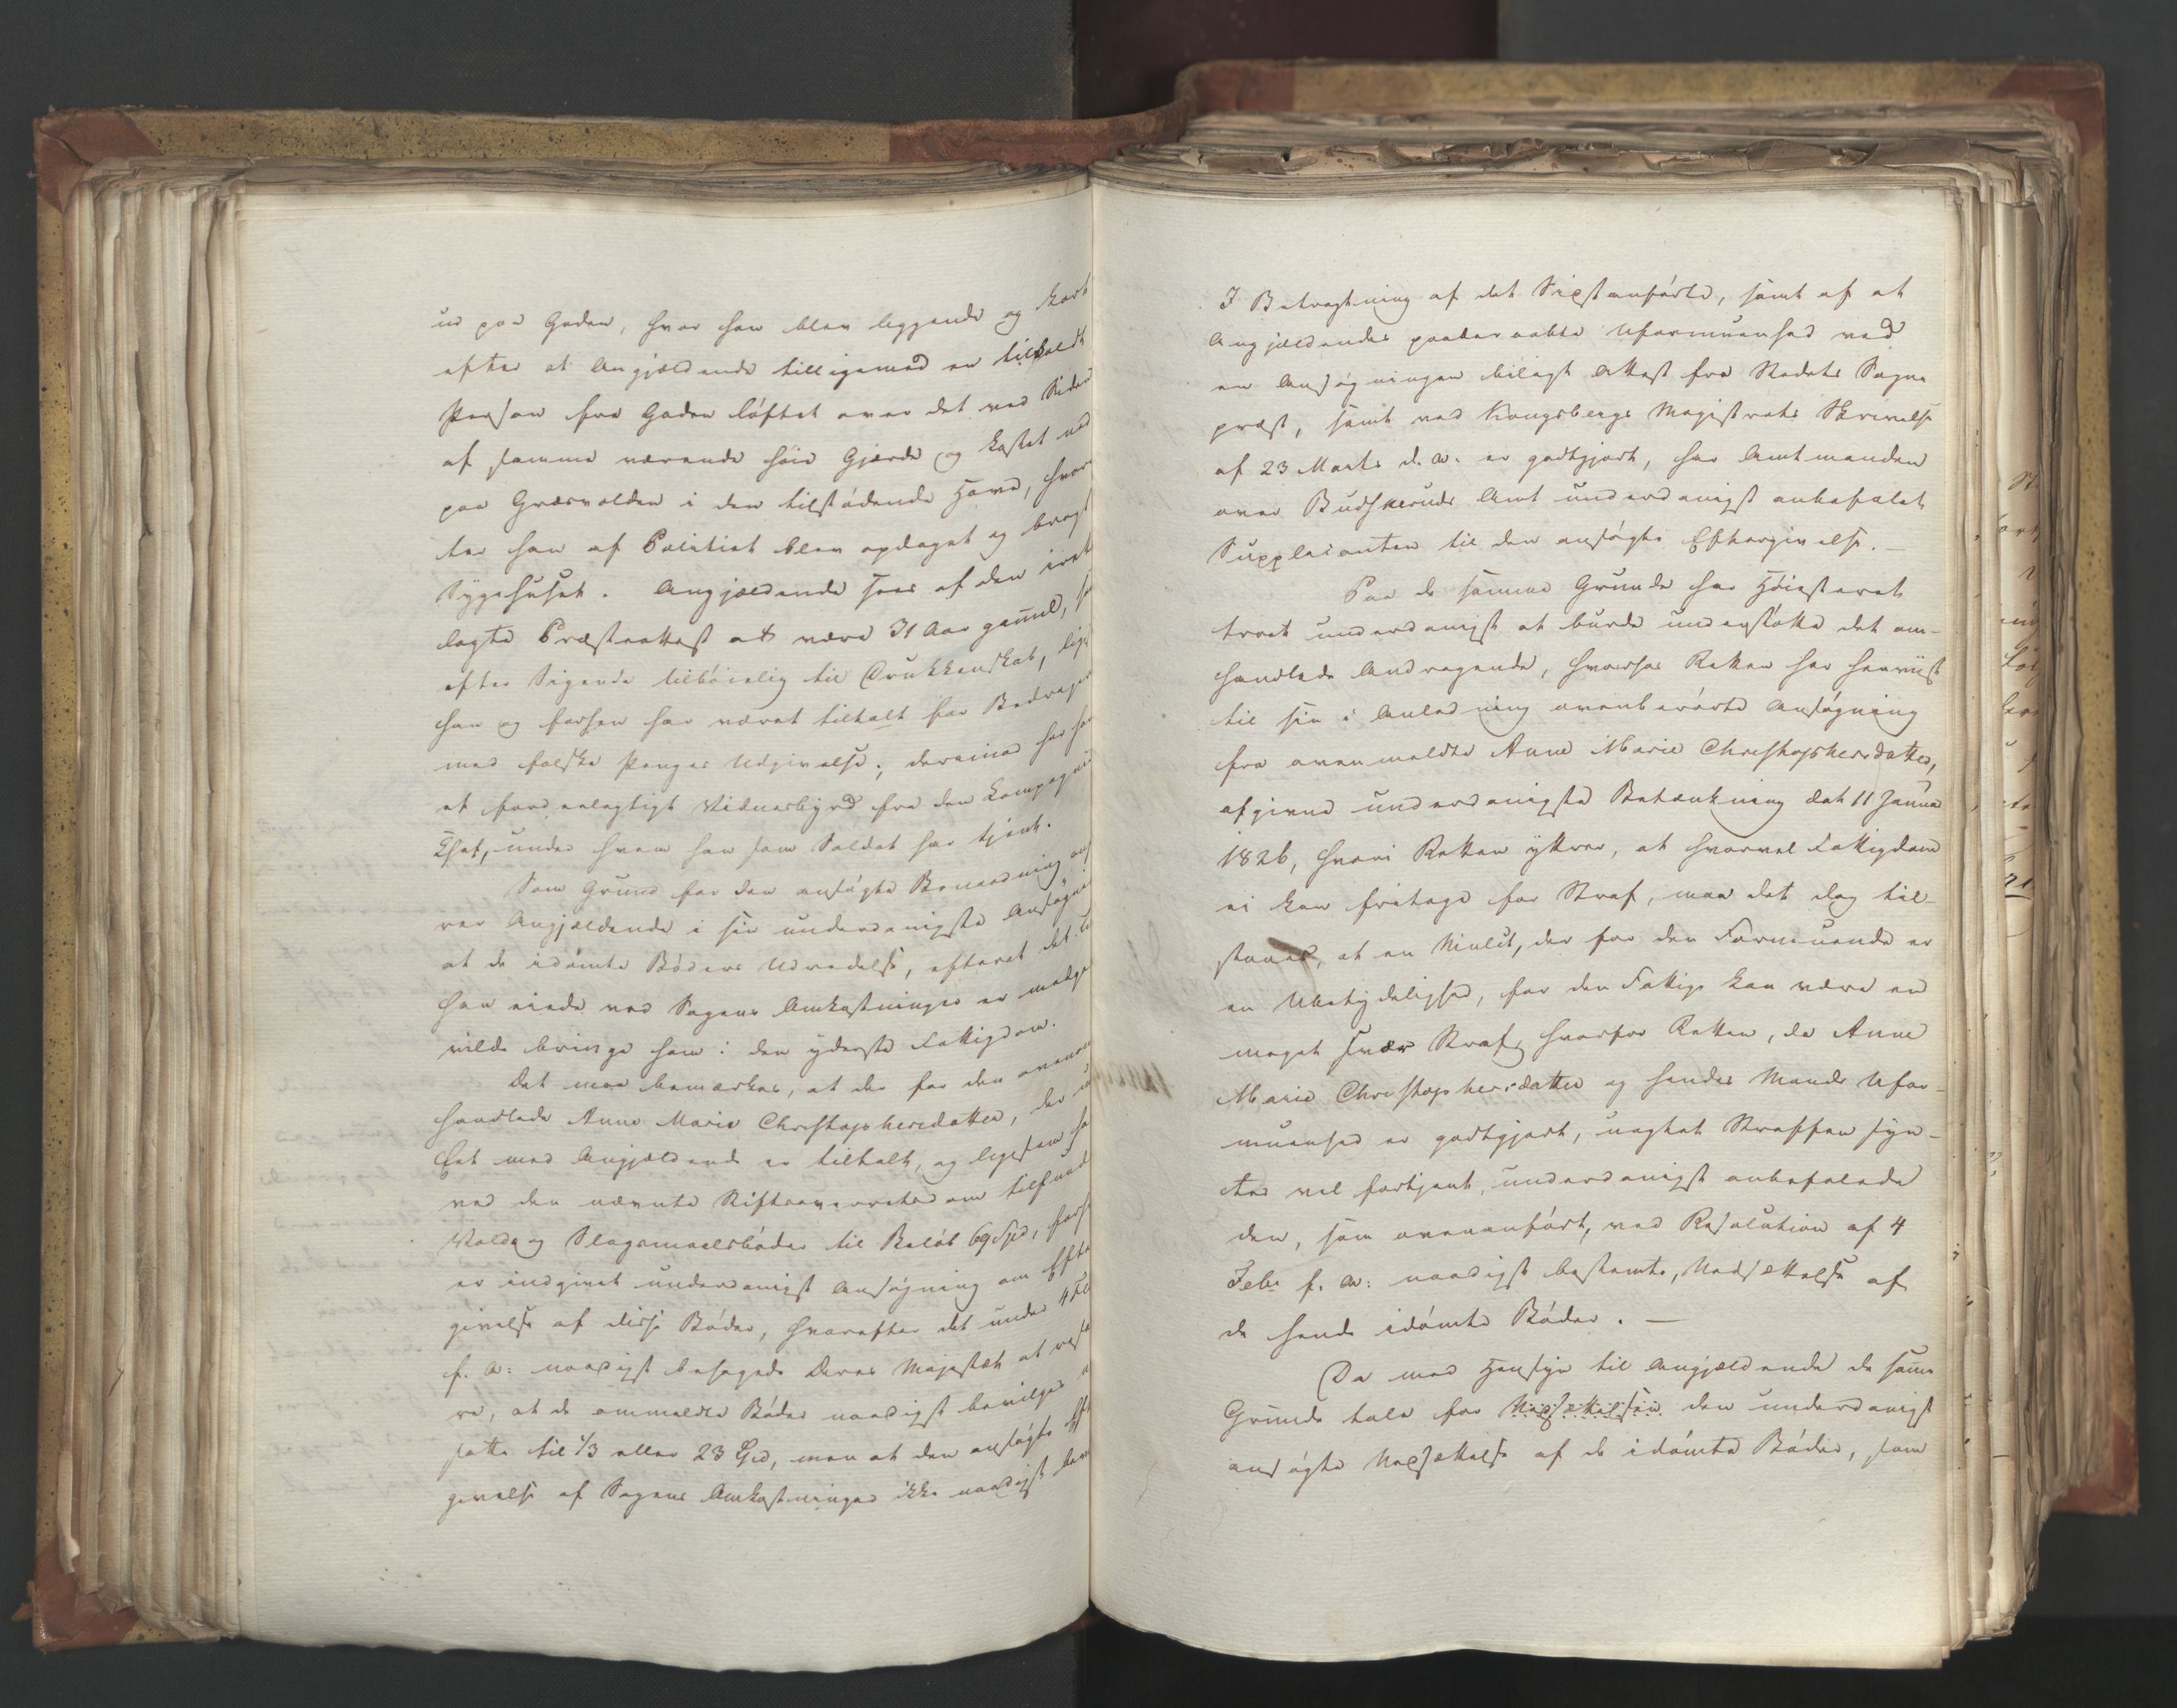 ud paa Gaden, hvor han blev liggende og kort
efter at Angjældende tilligemed en tilkaldt
Person fra Gaden løftet over det ved Siden
af samme værende høie Gjærde og kastet ned
paa Græsvolden i den tilstødende Have, hvor
ter han af Politiet blev opdaget og bragt
Sygehuset. Angjældende sees af den iret
lagte Præsteattest at være 31 Aar gammel,
efter Sigende tilbøielig til Drukkenskab, lige
han og forhen har været tiltalt for Bedrager
med falske Penges Udgivelse; derimod har han
et fordeelagtigt Vidnesbyrd fra den Kompagnie
Chef, under hvem han som Soldat har tjent.
Som Grund for den ansøgte Benaadning an
rer Angjældende i sin underdanigste Ansøgni
at de idømte Bøders Udredelse, efterat det
han eiede ved Sagens Omkostninger er medga
vilde bringe ham i den yderste Fattigdom.
Det maa bemærkes, at der for den ovenom
handlede Anne Marie Christophersdatter, der i
Eet med Angjældende er tiltalt, og ligesom ha
ved den nævnte Stiftsoverretsdom tilfunde
Volds og Slagsmaalsbøder til Beløb 69 Spd,
er indgivet underdanigst Ansøgning om Efter
givelse af disse Bøder, hvorefter det under 4 Feb
f. A: naadigst behagede Deres Majestæt at resol
re, at de ommeldte Bøder naadigst bevilges
satte til 1/3 eller 23 Spd, men at den ansøgte Eft
givelse af Sagens Omkostninger ikke naadigst bev
I Betragtning af det Sidstanførte, samt af at
Angjældendes paaberaabte Uformuenhed ved
en Ansøgningen bilagt Attest fra Stedets Sogne
præst, samt ved Kongsbergs Magistrats Skrivelse
af 23 Marts d. A: er godtgjort, har Amtmanden
over Budskeruds Amt underdanigst anbefalet
Supplicanten til den ansøgte Eftergivelse. —
Paa de samme Grunde har Høiesteret
troet underdanigst at burde understøtte det om-
handlede Andragende, hvorhos Retten har henviist
til sin i Anledning ovenberørte Ansøgning
fra ovenmeldte Anne Marie Christophersdatter,
afgivne underdanigste Betænkning dat 11 Janua
1826, hvori Retten yttrer, at hvorvel Fattigdom
ei kan fritage for Straf, maa det dog til-
staaes, at en Mulct, der for den Formuende er
en Ubetydelighed, for den Fattige kan være en
meget svær Straf, hvorfor Retten, da Anne
Marie Christophersdatter og hendes Mands Ufor-
muenhed er godtgjort, uagtet Straffen syn-
tes vel fortjent, underdanigst anbefalede
den, som ovenanført, ved Resolution af 4
Febr f. A: naadigst bestemte, Nedsættelse af
de hende idømte Bøder. —
Da med Hensyn til Angjældende de samme
Grunde tale for Nedsættelsen den underdanigst
ansøgte Nedsættelse af de idømte Bøder, som